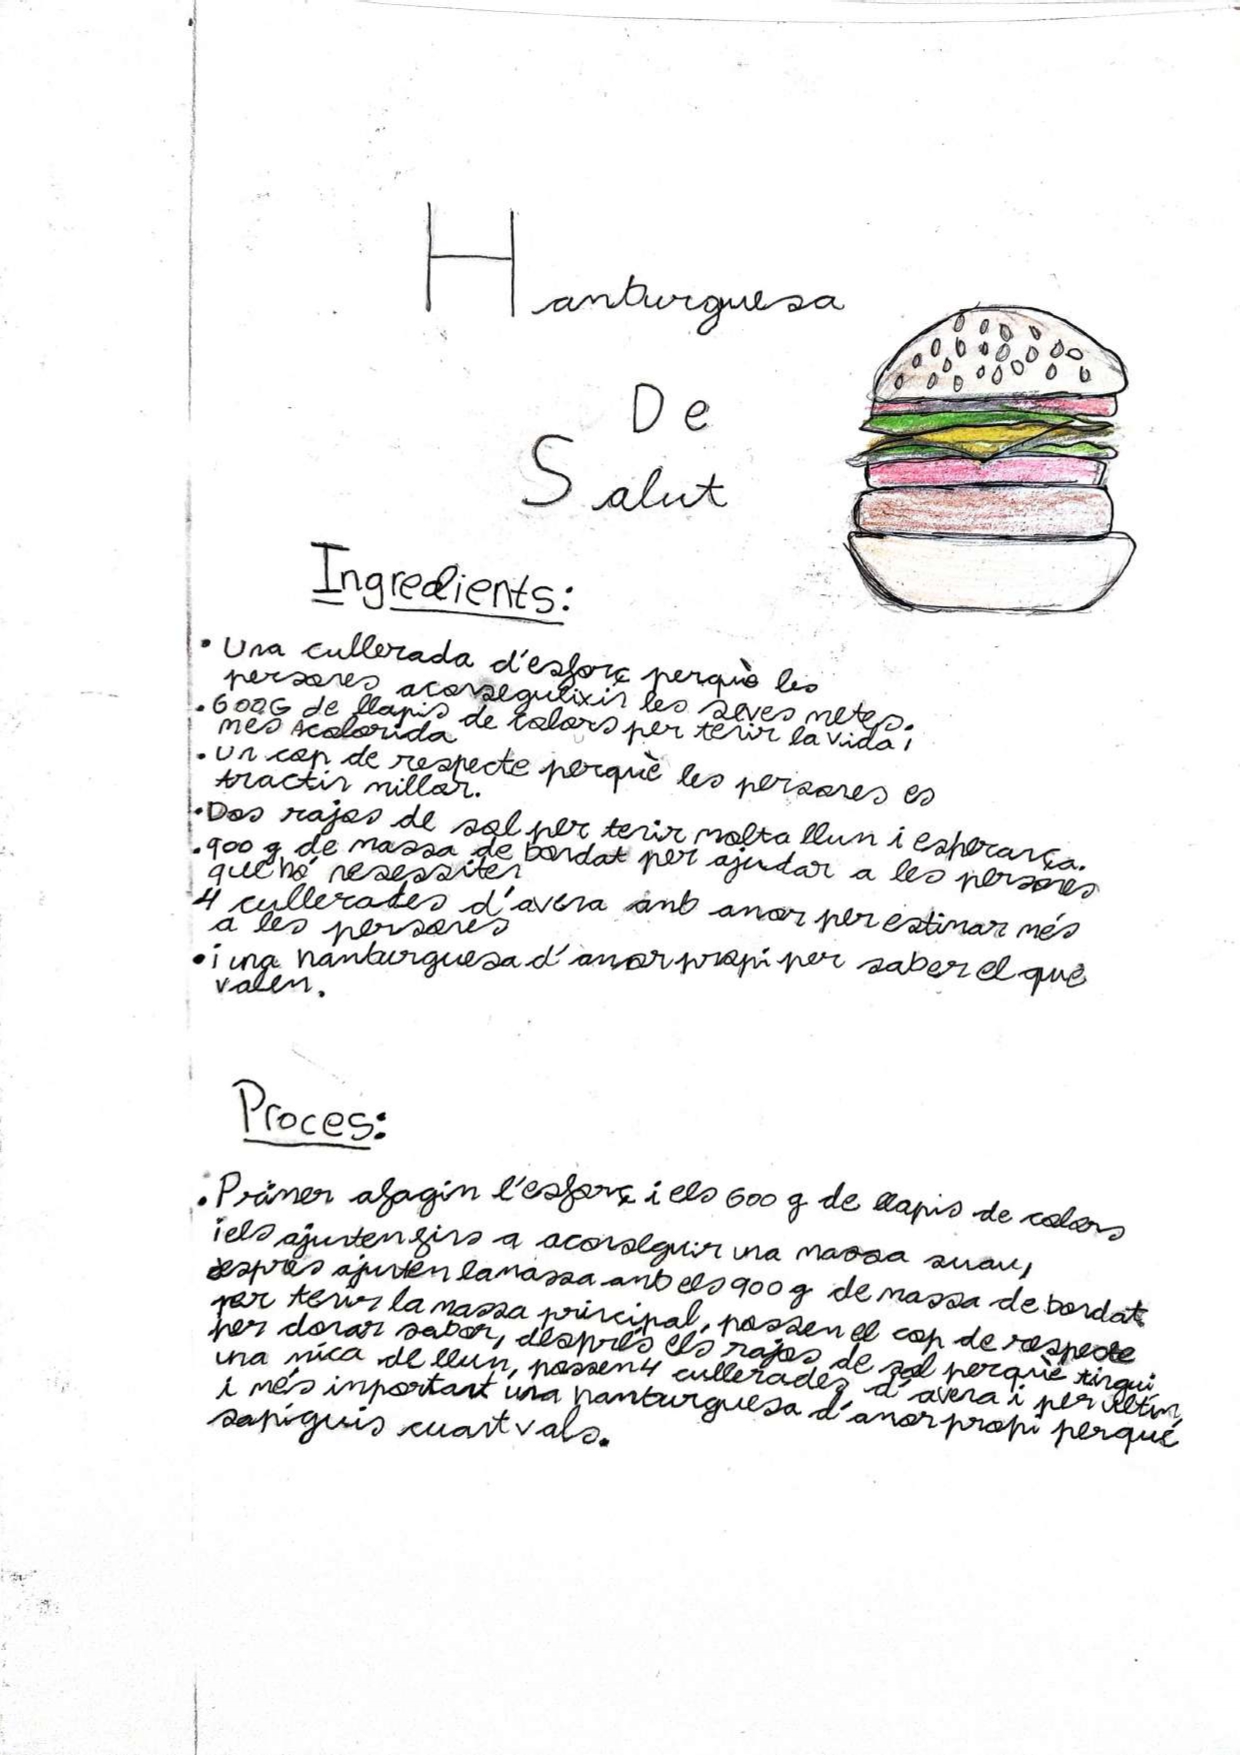 Hanburguesa
De
Salut
Ingredients:
• Una cullerada d'esforç perquè les
persones aconseguixin les seves metes.
. 600G de llapis de colors per tenir la vida i
més acolorida
. un cop de respecte perquè les persones es
tractin millor.
• Dos rajos de sol per tenir molta llun i esperança.
. 900 g de massa de bondat per ajudar a les persones
que ho nesessiten
4 cullerades d'avena amb amor per estimar més
a les persones
• i una hanburguesa d'amor propi per saber el que
valen.
Proces:
. Primer afagin l'esforç i els 600 g de llapis de colors
i els ajunten fins a aconseguir una massa suau,
després ajunten la massa amb els 900 g de massa de bondat
per tenir la massa principal, possen el cop de respecte
per donar sabor, després els rajos de sol perquè tingui
una mica de llun, possen 4 cullerades d'avena i per últim,
i més important una hanburguesa d'amor propi perquè
sapiguis cuant vals.